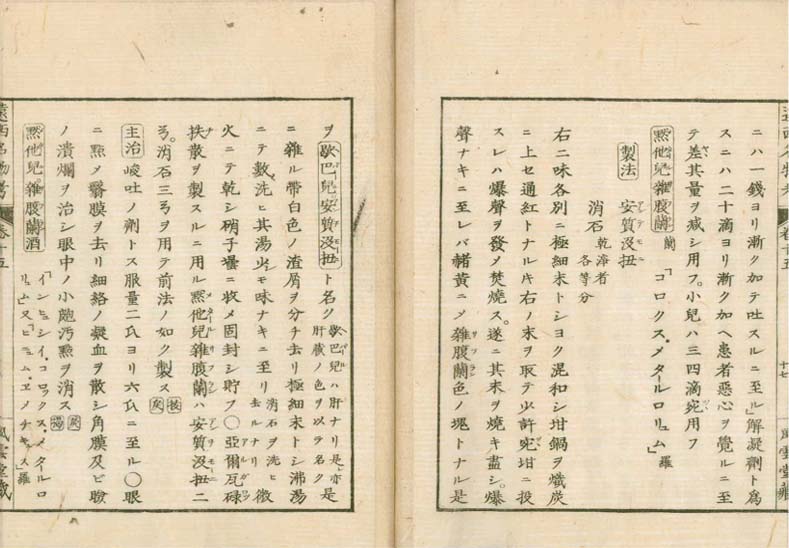 ニハ一錢ヨリ漸ク加テ吐スルニ至ル」解凝劑ト爲
スニハ二十滴ヨリ漸ク加ヘ患者惡心ヲ覺ルニ至
テ差其量ヲ减シ用フ。小兒ハ三四滴宛用フ
㸃他兒雜腹蘭 蘭 「コロクス、メタルロリュム」羅
製法 安質没扭 アンテモニー
消石 乾淨者 各等分
右二味各別ニ極細末トシヨク混和シ坩鍋ヲ熾炭
ニ上セ通紅トナルキ右ノ末ヲ取テ少許宛坩ニ投
スレハ爆聲ヲ發メ焚燒ス。遂ニ其末ヲ燒キ盡シ。爆
聲ナキニ至レバ赭黃ニメ雜腹蘭色ノ塊トナル是
遠西名物考 卷十五 十七 風雲堂藏
ヲ歇巴兒安質没扭ト名ク 歇巴兒ハ肝ナリ是亦是
肝臓ノ色ヲ以テ名ク
ニ雜ル帶白色ノ渣屑ヲ分チ去リ極細末トシ沸湯
ニテ數洗ヒ其湯少モ味ナキニ至リ 消石ヲ洗ヒ
去ルナリ 微
火ニテ乾シ硝子壜ニ收メ固封シ貯フ〇亞爾瓦碌
扶散ヲ製スルニ用ル㸃他兒雜腹蘭ハ安質没扭二
弓。消石三弓ヲ用テ前法ノ如ク製ス
主治 峻吐ノ劑トス服量二氏ヨリ六氏ニ至ル〇眼
ニ㸃メ翳膜ヲ去リ細絡ノ凝血ヲ散シ角膜及ビ瞼
ノ潰爛ヲ治シ眼中ノ小皰汚㸃ヲ消ス
㸃他兒雜腹蘭酒 「インヒュシイ、コロックス、メタルロ
リュム」又「ヒニュム、ヱメチキュス」羅
遠西名物考 卷十五 風雲堂藏